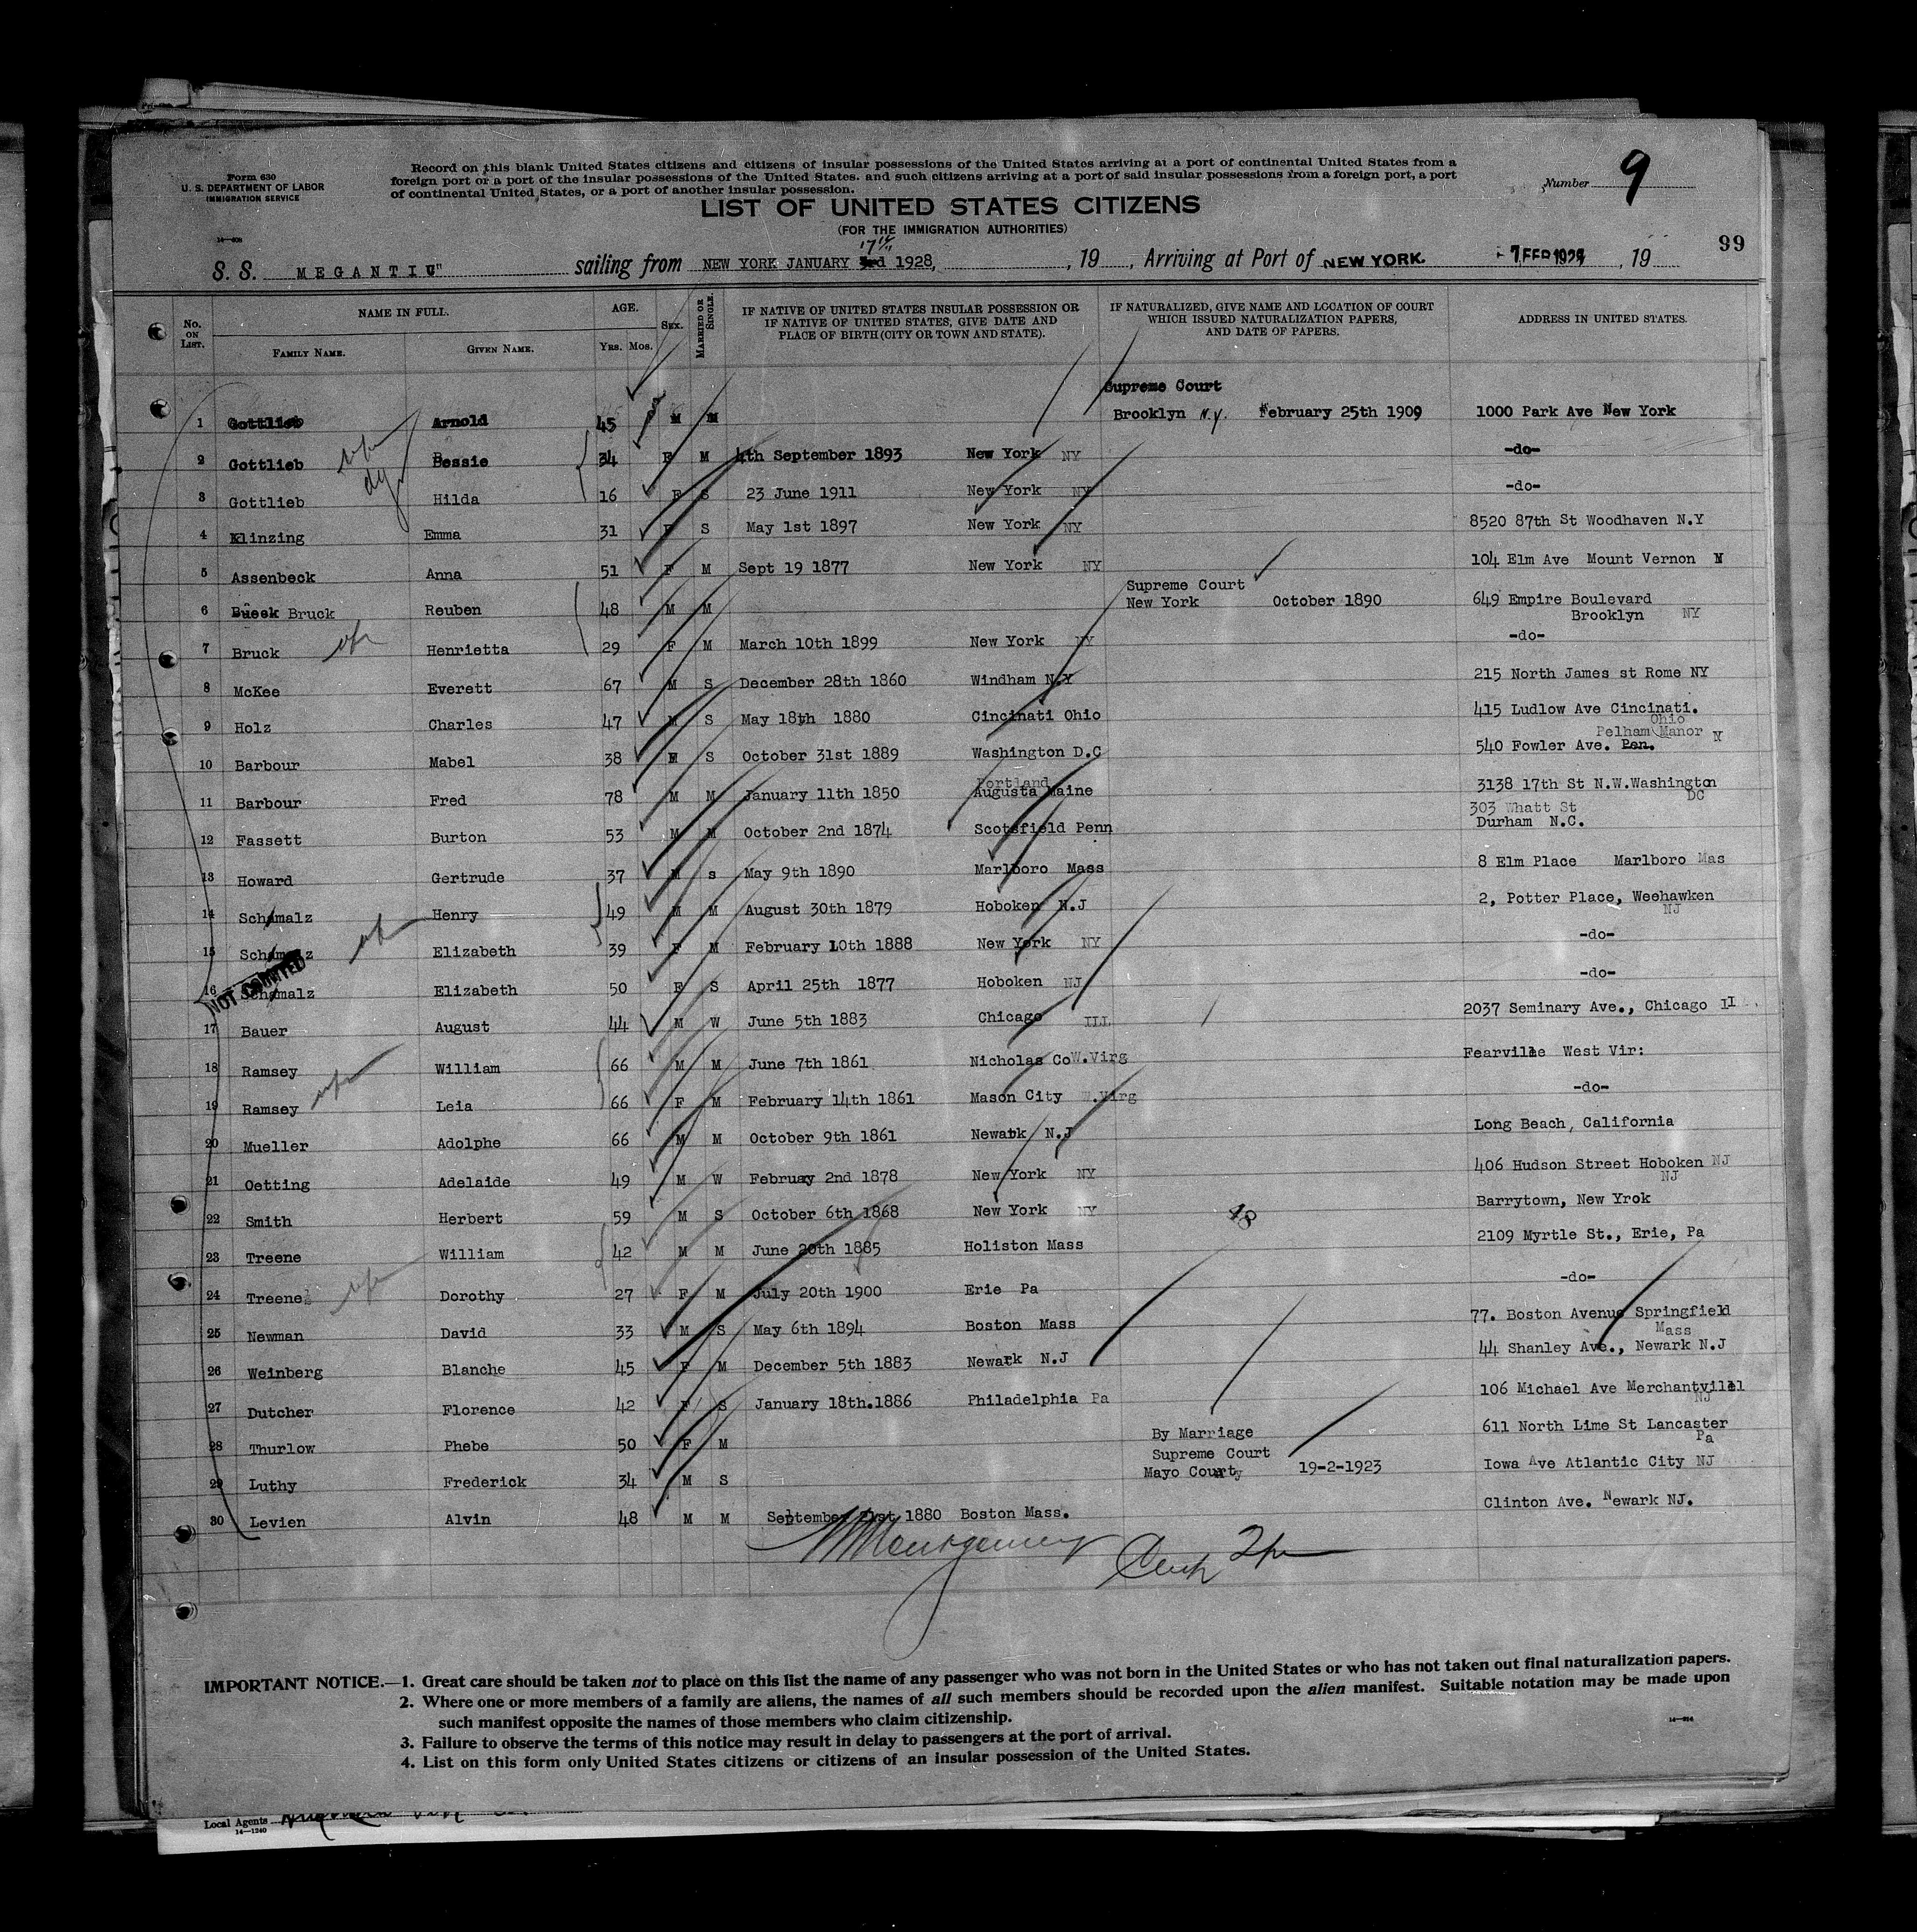 Form 630
U. S. DEPARTMENT OF LABOR
IMMIGRATION SERVICE
Record on this blank United States citizens and citizens of insular possessions of the United States arriving at a port of continental United States from a
foreign port or a port of the insular possessions of the United States. and such citizens arriving at a port of said insular possessions from a foreign port, a port
of continental United States, or a port of another insular possession.
Number 9
LIST OF UNITED STATES CITIZENS
(FOR THE IMMIGRATION AUTHORITIES)
99
17th
S. S. MEGANTIC" sailing from NEW YORK JANUARY 3rd 1928, , 19 , Arriving at Port of NEW YORK. 7 FEB 1928 , 19
No. ON LIST. NAME IN FULL. AGE. SEX. MARRIED OR SINGLE. IF NATIVE OF UNITED STATES INSULAR POSSESSION OR IF NATIVE OF UNITED STATES, GIVE DATE AND PLACE OF BIRTH (CITY OR TOWN AND STATE). IF NATURALIZED, GIVE NAME AND LOCATION OF COURT WHICH ISSUED NATURALIZATION PAPERS, AND DATE OF PAPERS. ADDRESS IN UNITED STATES.
FAMILY NAME. GIVEN NAME. YRS. MOS.
Supreme Court
1 Gottlieb Arnold 45 M M Brooklyn N.Y. February 25th 1909 1000 Park Ave New York
2 Gottlieb Bessie 34 F M 4th September 1893 New York NY -do-
3 Gottlieb Hilda 16 F S 23 June 1911 New York NY -do-
4 Klinzing Emma 31 F S May 1st 1897 New York NY 8520 87th St Woodhaven N.Y
5 Assenbeck Anna 51 F M Sept 19 1877 New York NY 104 Elm Ave Mount Vernon N
Supreme Court
6 Bueek Bruck Reuben 48 M M New York October 1890 649 Empire Boulevard
Brooklyn NY
7 Bruck Henrietta 29 F M March 10th 1899 New York NY -do-
8 McKee Everett 67 M S December 28th 1860 Windham N.Y 215 North James st Rome NY
9 Holz Charles 47 M S May 18th 1880 Cincinati Ohio 415 Ludlow Ave Cincinati.
Ohio
Pelham Manor N
10 Barbour Mabel 38 F S October 31st 1889 Washington D.C 540 Fowler Ave. Pen.
Portland
11 Barbour Fred 78 M M January 11th 1850 Augusta Maine 3138 17th St N.W.Washington
DC
303 Whatt St
12 Fassett Burton 53 M M October 2nd 1874 Scotsfield Penn Durham N.C.
13 Howard Gertrude 37 M s May 9th 1890 Marlboro Mass 8 Elm Place Marlboro Mas
14 Schmalz Henry 49 M M August 30th 1879 Hoboken N.J 2, Potter Place, Weehawken
NJ
15 Schmalz Elizabeth 39 F M February 10th 1888 New York NY -do-
NOT COUNTED
16 Schmalz Elizabeth 50 F S April 25th 1877 Hoboken NJ -do-
17 Bauer August 44 M W June 5th 1883 Chicago ILL 2037 Seminary Ave., Chicago Il
18 Ramsey William 66 M M June 7th 1861 Nicholas Co W.Virg Fearville West Vir:
19 Ramsey Leia 66 F M February 14th 1861 Mason City W.Virg -do-
20 Mueller Adolphe 66 M M October 9th 1861 Newark N.J Long Beach, California
21 Oetting Adelaide 49 M W February 2nd 1878 New York NY 406 Hudson Street Hoboken NJ
NJ
22 Smith Herbert 59 M S October 6th 1868 New York NY Barrytown, New Yrok
48
23 Treene William 42 M M June 20th 1885 Holiston Mass 2109 Myrtle St., Erie, Pa
24 Treene Dorothy 27 F M July 20th 1900 Erie Pa -do-
25 Newman David 33 M S May 6th 1894 Boston Mass 77. Boston Avenue Springfield
Mass
26 Weinberg Blanche 45 F M December 5th 1883 Newark N.J 44 Shanley Ave., Newark N.J
27 Dutcher Florence 42 F S January 18th.1886 Philadelphia Pa 106 Michael Ave Merchantvillel
NJ
28 Thurlow Phebe 50 F M By Marriage 611 North Lime St Lancaster
Pa
Supreme Court
29 Luthy Frederick 34 M S Mayo County 19-2-1923 Iowa Ave Atlantic City NJ
30 Levien Alvin 48 M M September 21st 1880 Boston Mass. Clinton Ave. Newark NJ.
IMPORTANT NOTICE.—1. Great care should be taken not to place on this list the name of any passenger who was not born in the United States or who has not taken out final naturalization papers.
2. Where one or more members of a family are aliens, the names of all such members should be recorded upon the alien manifest. Suitable notation may be made upon
such manifest opposite the names of those members who claim citizenship.
3. Failure to observe the terms of this notice may result in delay to passengers at the port of arrival.
4. List on this form only United States citizens or citizens of an insular possession of the United States.
Local Agents
14—1240